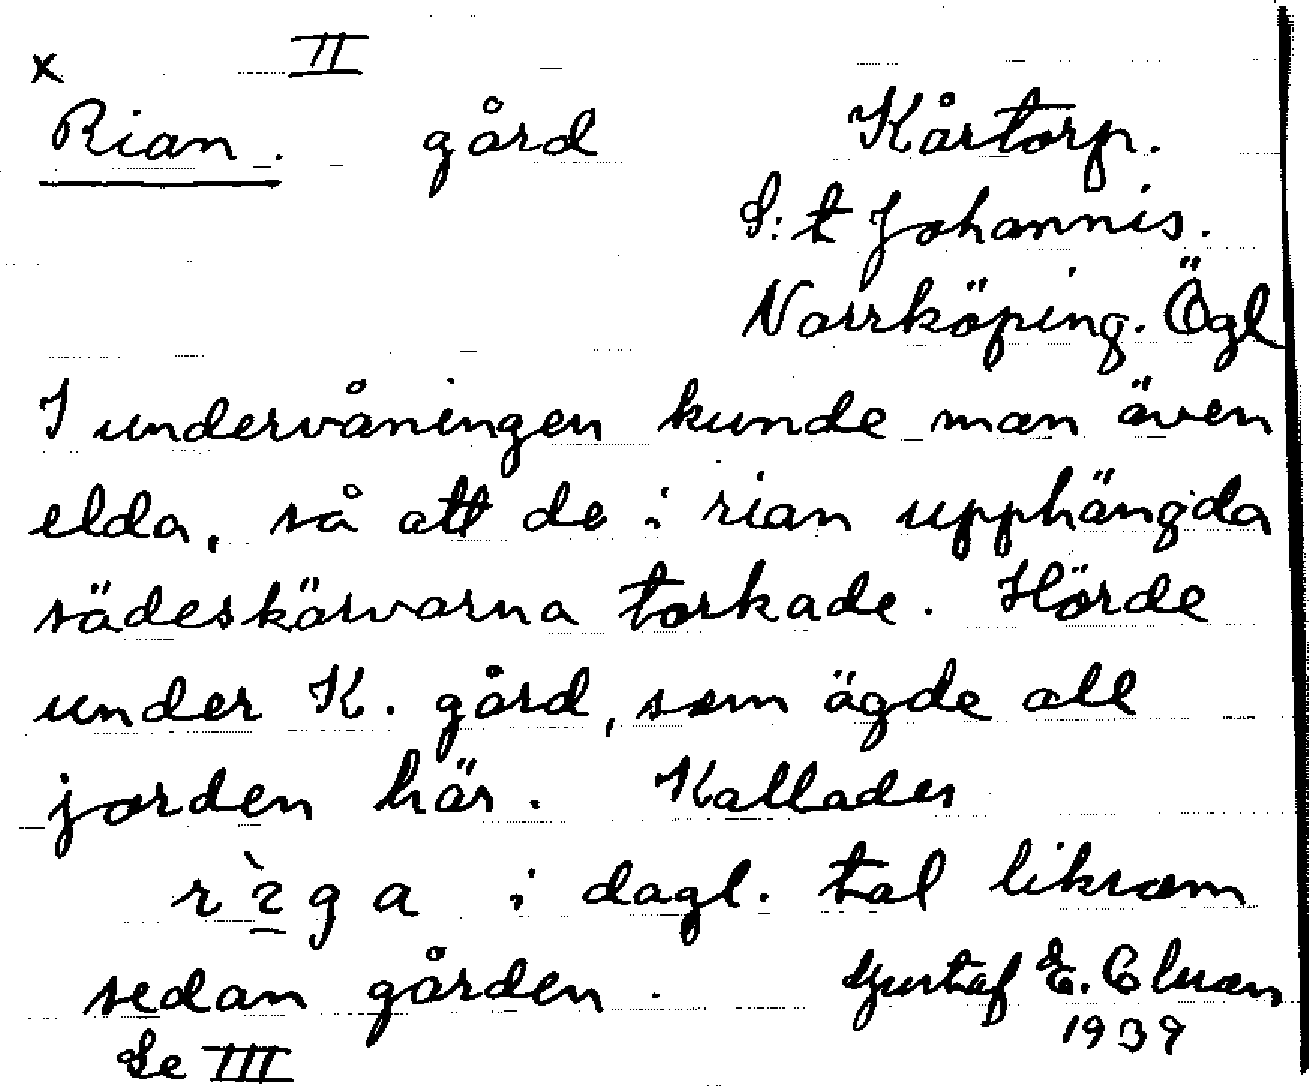 x II
Rian. gård Kårtorp.
S:t Johannis.
Norrköping. Ögl
I undervåningen kunde man även
elda, så att de i rian upphängda
sädeskärvarna torkade. Hörde
under K. gård, som ägde all
jorden här. Kallades
i dagl. tal liksom
sedan gården. Gustaf E.
1939
Se III